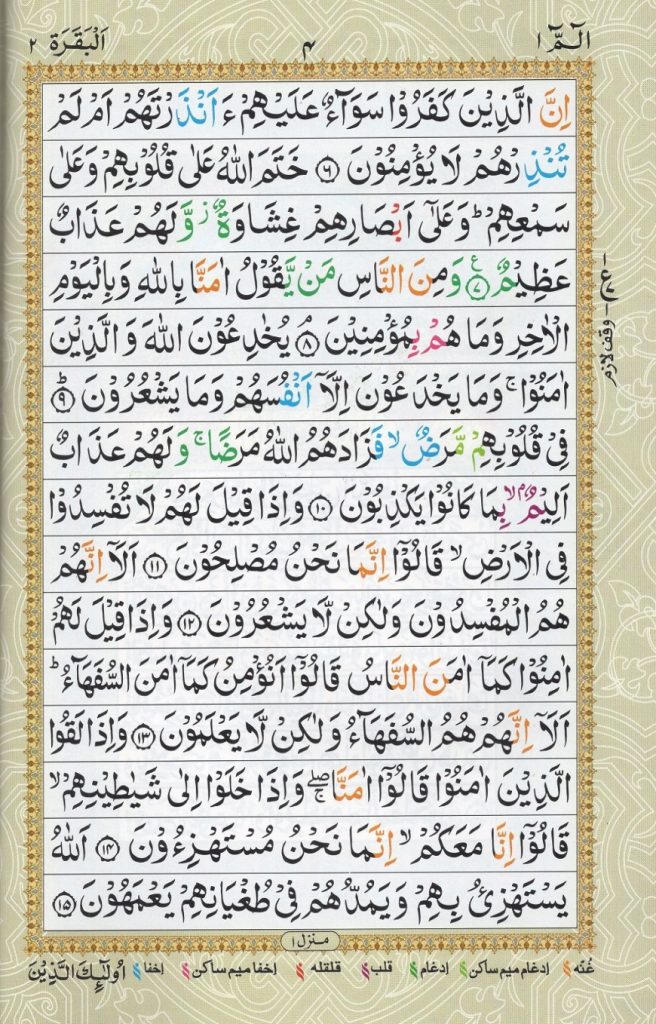 الٓمّٓ ۱ ۴ اَلْبَقَرَة ۲
اِنَّ الَّذِيْنَ كَفَرُوْا سَوَآءٌ عَلَيْهِمْ ءَ اَنْذَرْتَهُمْ اَمْ لَمْ
تُنْذِرْهُمْ لَا يُؤْمِنُوْنَ ۝۶ خَتَمَ اللّٰهُ عَلٰى قُلُوْبِهِمْ وَعَلٰى
سَمْعِهِمْ ؕ وَعَلٰۤى اَبْصَارِهِمْ غِشَاوَةٌ ؗ وَّ لَهُمْ عَذَابٌ
عَظِيْمٌ ۝۷ وَمِنَ النَّاسِ مَنْ يَّقُوْلُ اٰمَنَّا بِاللّٰهِ وَبِالْيَوْمِ
الْاٰخِرِ وَمَا هُمْ بِمُؤْمِنِيْنَ ۝۸ يُخٰدِعُوْنَ اللّٰهَ وَ الَّذِيْنَ
اٰمَنُوْا ۚ وَمَا يَخْدَعُوْنَ اِلَّاۤ اَنْفُسَهُمْ وَمَا يَشْعُرُوْنَ ؕ ۝۹
فِىْ قُلُوْبِهِمْ مَّرَضٌ ۙ فَزَادَهُمُ اللّٰهُ مَرَضًا ۚ وَ لَهُمْ عَذَابٌ
اَلِيْمٌ ۙ بِمَا كَانُوْا يَكْذِبُوْنَ ۝۱۰ وَاِذَا قِيْلَ لَهُمْ لَا تُفْسِدُوْا
فِى الْاَرْضِ ۙ قَالُوْۤا اِنَّمَا نَحْنُ مُصْلِحُوْنَ ۝۱۱ اَلَاۤ اِنَّهُمْ
هُمُ الْمُفْسِدُوْنَ وَلٰكِنْ لَّا يَشْعُرُوْنَ ۝۱۲ وَاِذَا قِيْلَ لَهُمْ
اٰمِنُوْا كَمَاۤ اٰمَنَ النَّاسُ قَالُوْۤا اَنُؤْمِنُ كَمَاۤ اٰمَنَ السُّفَهَآءُ ؕ
اَلَاۤ اِنَّهُمْ هُمُ السُّفَهَآءُ وَ لٰكِنْ لَّا يَعْلَمُوْنَ ۝۱۳ وَاِذَا لَقُوا
الَّذِيْنَ اٰمَنُوْا قَالُوْۤا اٰمَنَّا ۚۖ وَاِذَا خَلَوْا اِلٰى شَيٰطِيْنِهِمْ ۙ
قَالُوْۤا اِنَّا مَعَكُمْ ۙ اِنَّمَا نَحْنُ مُسْتَهْزِءُوْنَ ۝۱۴ اَللّٰهُ
يَسْتَهْزِئُ بِهِمْ وَ يَمُدُّهُمْ فِىْ طُغْيَانِهِمْ يَعْمَهُوْنَ ۝۱۵
وقف لازم
منزل ۱
غُنّه ادغام میم ساکن ادغام قلب اخفا میم ساکن قلقله اخفا اُولٰٓئِكَ الَّذِيْنَ